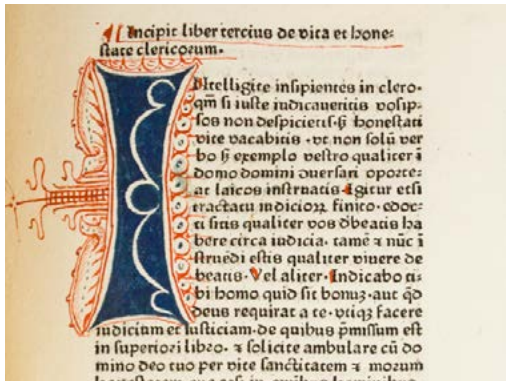 Incipit liber tercius de vita et hone-
state clericorum.
INtelligite insipientes in clero.
qm̄ si iuste iudicaueritis vosip-
sos non despicietis. s̄ honestati
vite vacabitis. vt non solū ver
bo s̄ exemplo vestro qualiter ī
domo domini ꝯuersari oporte-
at laicos instruatis. Igitur etsi
tractatu iudicioꝝ finito. edoc-
ti sitis qualiter vos d̄beatis ha
bere circa iudicia. tamē ⁊ nūc ī
struēdi estis qualiter viuere de
beatis. Vel aliter. Indicabo ti-
bi homo quid sit bonuꝫ. aut qd̄
deus requirat a te. vtiqꝫ facere
iudicium et iusticiam. de quibus p̄missum est
in superiori libro. ⁊ solicite ambulare cū do
mino deo tuo per vite sanctitatem ⁊ morum